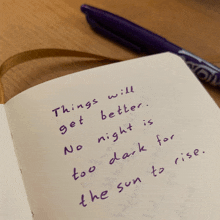 Things will
get better.
No night is
too dark for
the sun to rise.